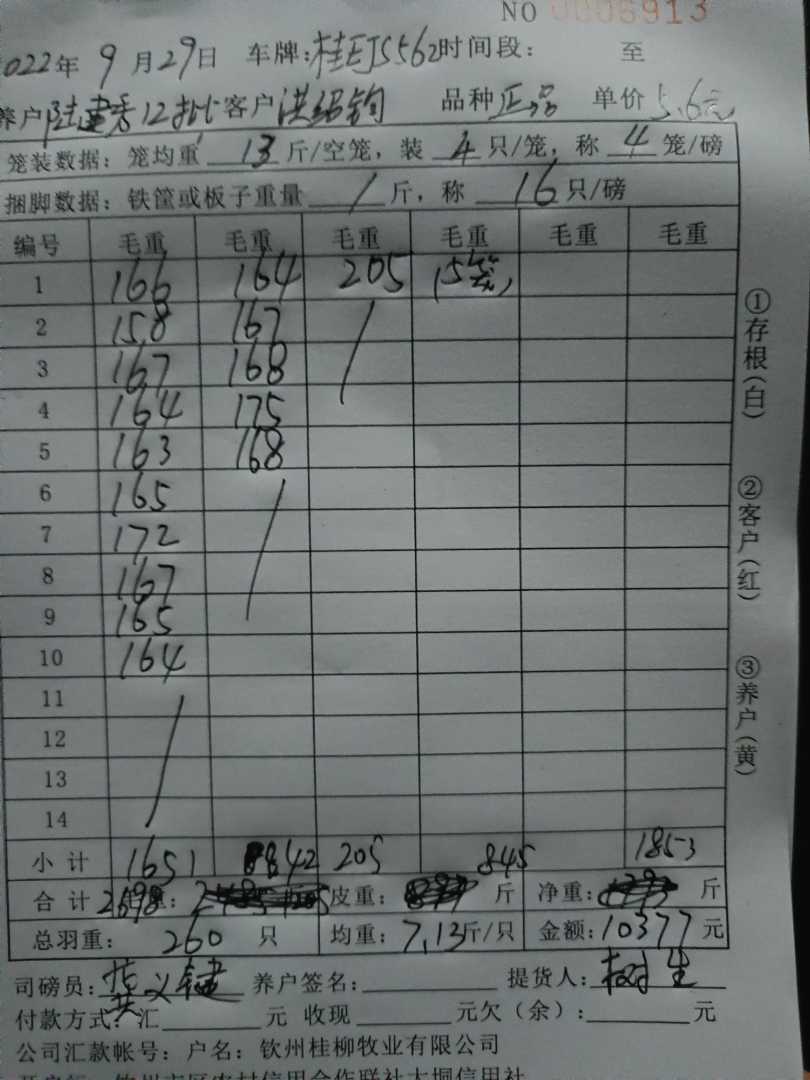 NO 0006913
2022年 9月29日 车牌:桂EJS562时间段: 至
养户陆建秀12批客户洪绍钧 品种正品 单价5.6元
笼装数据: 笼均重 13 斤/空笼, 装 4 只/笼, 称 4 笼/磅
捆脚数据: 铁筐或板子重量 / 斤, 称 16 只/磅
编号 毛重 毛重 毛重 毛重 毛重 毛重
1 166 164 205 (5笼)
2 158 167
3 167 168
4 164 175
5 163 168
6 165
7 172
8 167
9 165
10 164
11
12
13
14
小计 1651 842 205 845 1853
合计 2698 : 皮重: 斤 净重: 斤
总羽重: 260 只 均重: 7.13斤/只 金额: 10377元
司磅员: 养户签名: 提货人:
付款方式: 汇 元 收现 元欠(余): 元
公司汇款帐号: 户名: 钦州桂柳牧业有限公司
①存根(白)
②客户(红)
③养户(黄)